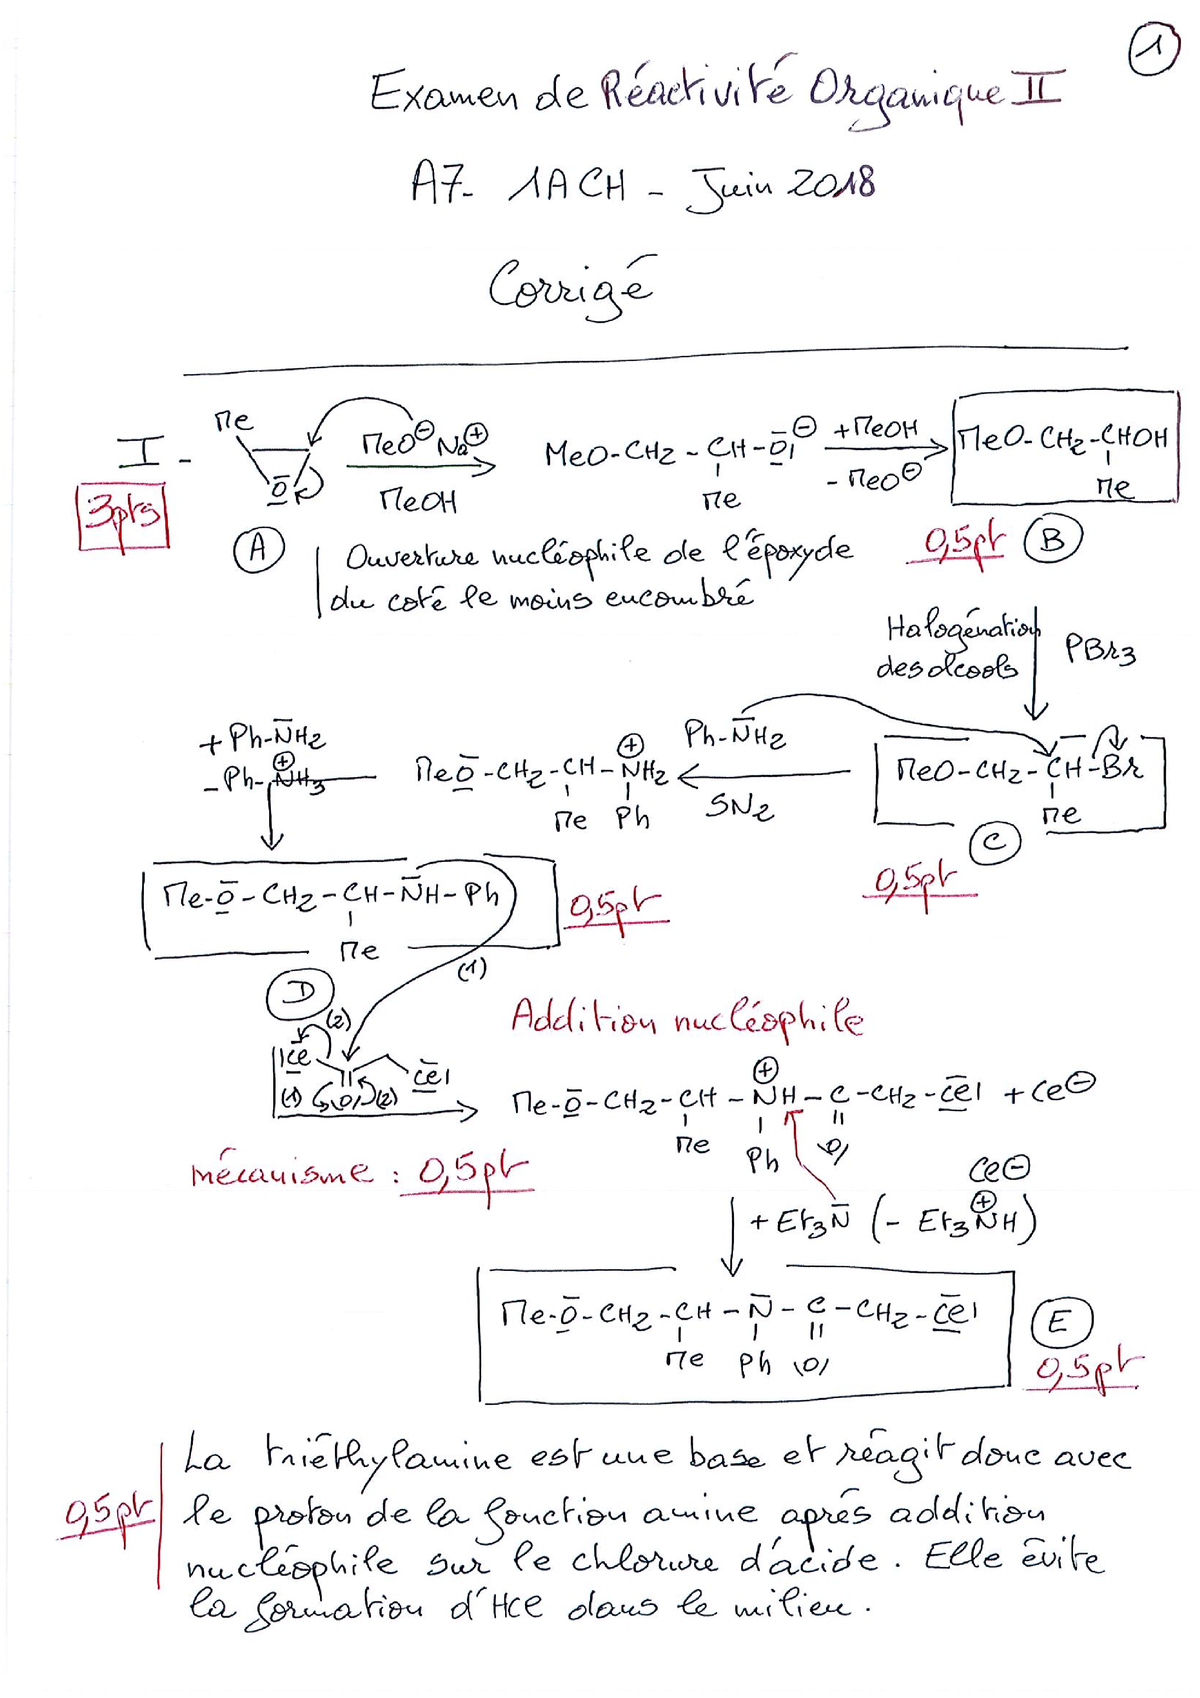 1
Examen de Réactivité Organique II
A7- 1ACH - Juin 2018
Corrigé
I -
3pts
Me
O
MeO⊖ Na⊕
MeOH
MeO-CH2-CH-O⊖
Me
+MeOH
- MeO⊖
MeO-CH2-CHOH
Me
A
Ouverture nucléophile de l'époxyde
du coté le moins encombré
0,5pt
B
Halogénation
des alcools
PBr3
+ Ph-NH2
- Ph-NH3⊕
MeO-CH2-CH-NH2⊕
Me Ph
Ph-NH2
SN2
MeO-CH2-CH-Br
Me
C
0,5pt
Me-O-CH2-CH-NH-Ph
Me
0,5pt
D
(1)
(2)
Cl
Cl
(1) O (2)
Addition nucléophile
Me-O-CH2-CH-NH⊕-C-CH2-Cl + Cl⊖
Me Ph O
mécanisme : 0,5pt
Cl⊖
+ Et3N (- Et3NH⊕)
Me-O-CH2-CH-N-C-CH2-Cl
Me Ph O
E
0,5pt
La triéthylamine est une base et réagit donc avec
0,5pt
le proton de la fonction amine aprés addition
nucléophile sur le chlorure d'acide. Elle évite
la formation d'HCl dans le milieu.